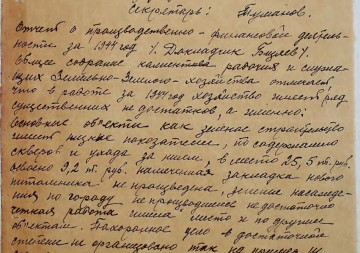 Секретарь: Туманов.
Отчет о производственно-финансовой деятель-
ности за 1944 год /. Докладчик
Общее собрание коллектива рабочих и служа-
щих Зелено-Земного-хозяйства отмечает,
что в работе за 1944 год хозяйство имеет ряд
существенных недостатков, а именно:
основные объекты как зеленое строительство
имеет низкие показатели, по содержанию
скверов и ухода за ними, вместо 25,5 т. руб.
освоено 9,2 т. руб. намеченная закладка нового
питомника не произведена, зеленые насажде-
ния по городу не производились недостаточно
четкая работа имела место и по другим
объектам. Похоронное дело в достаточной
степени не организовано так на